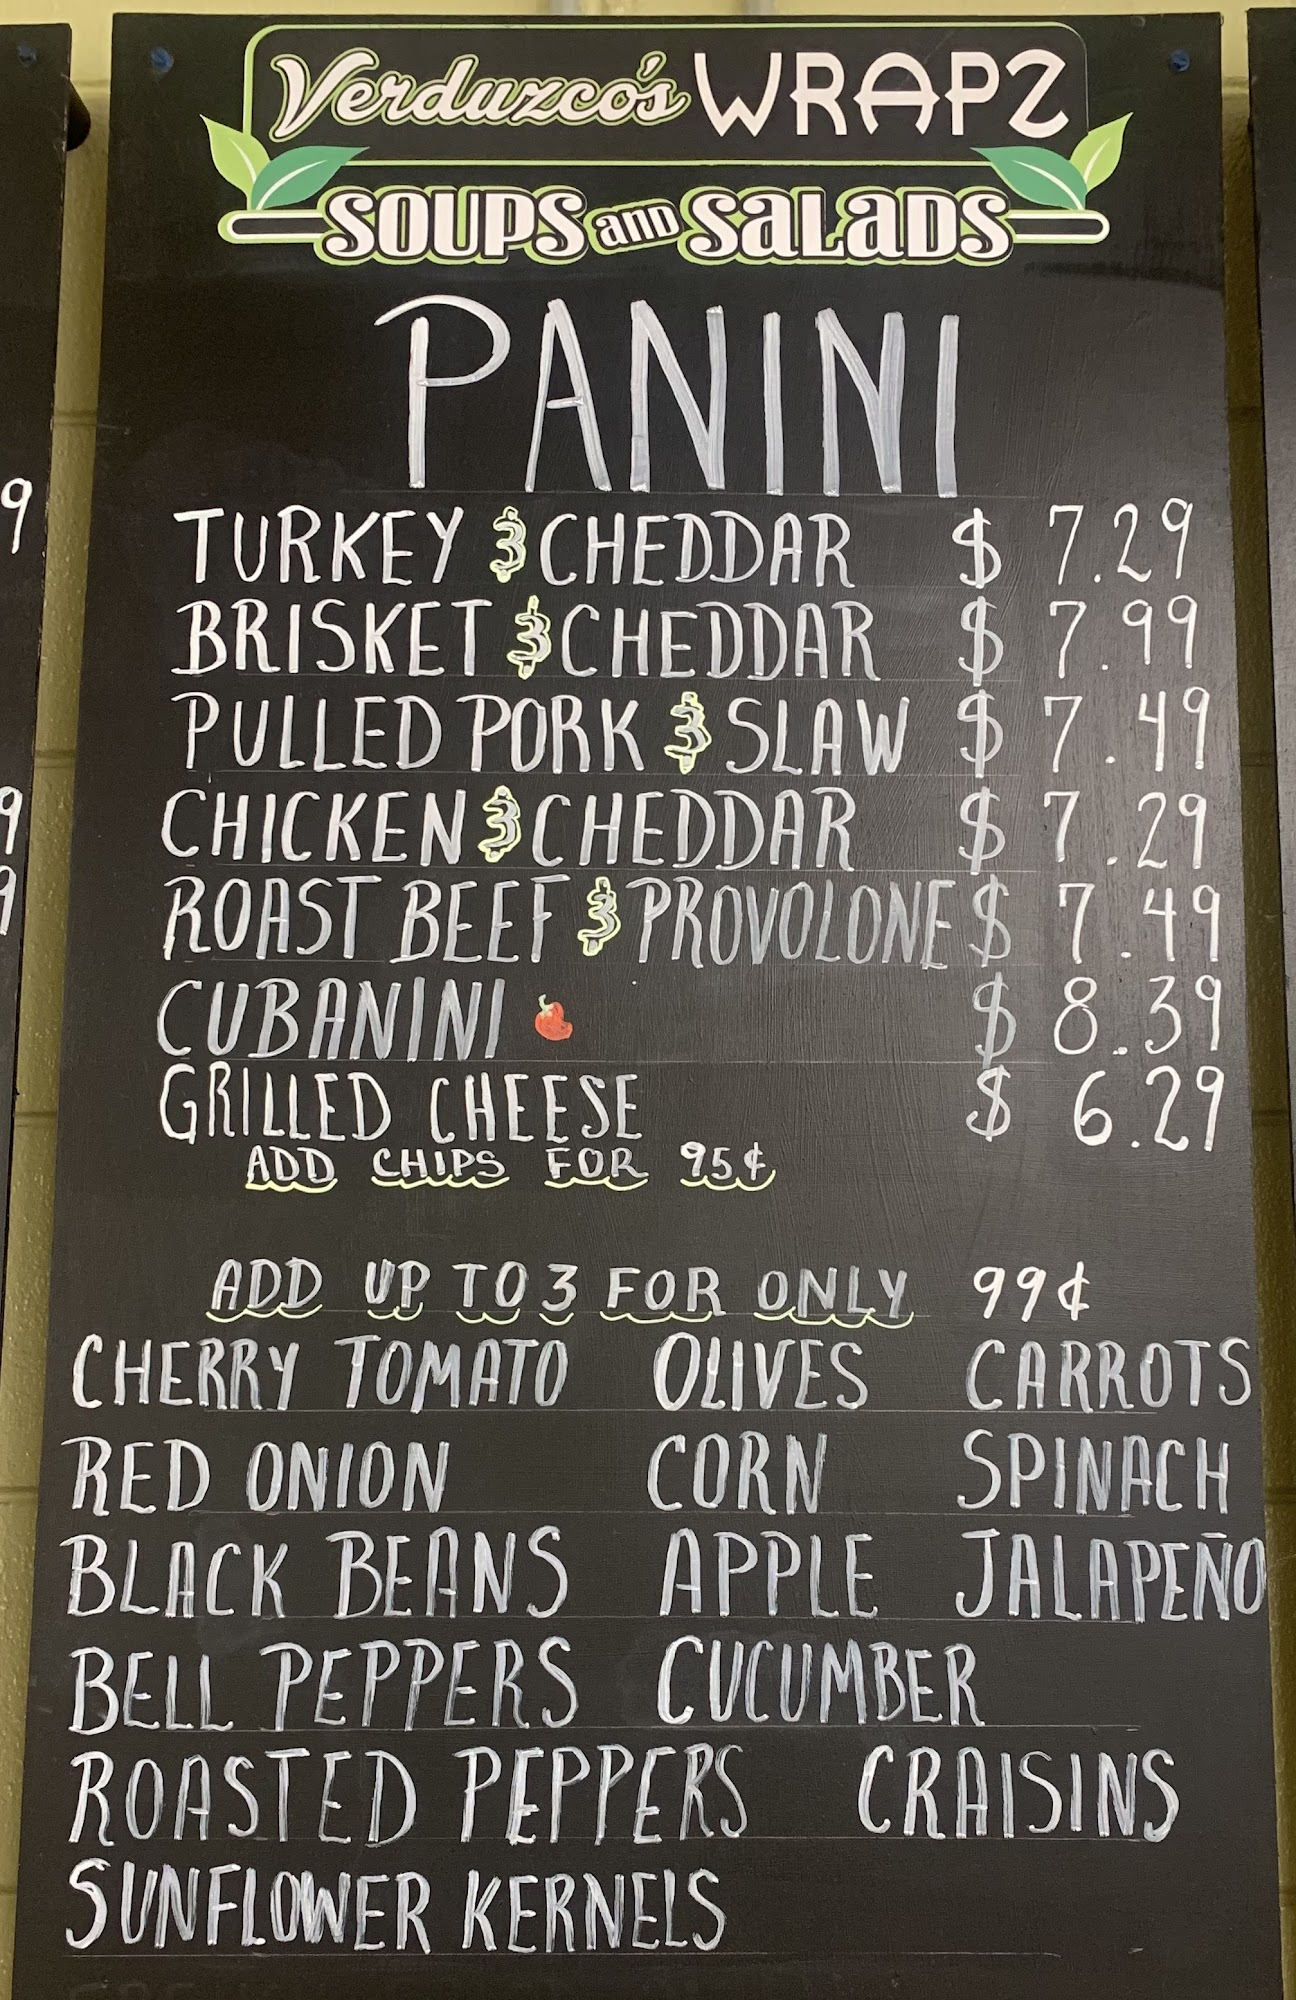 Verduzco's WRAPZ
SOUPS and SALADS
PANINI
TURKEY & CHEDDAR $ 7.29
BRISKET & CHEDDAR $ 7.99
PULLED PORK & SLAW $ 7.49
CHICKEN & CHEDDAR $ 7.29
ROAST BEEF & PROVOLONE $ 7.49
CUBANINI $ 8.39
GRILLED CHEESE $ 6.29
ADD CHIPS FOR 95¢
ADD UP TO 3 FOR ONLY 99¢
CHERRY TOMATO OLIVES CARROTS
RED ONION CORN SPINACH
BLACK BEANS APPLE JALAPEÑO
BELL PEPPERS CUCUMBER
ROASTED PEPPERS CRAISINS
SUNFLOWER KERNELS